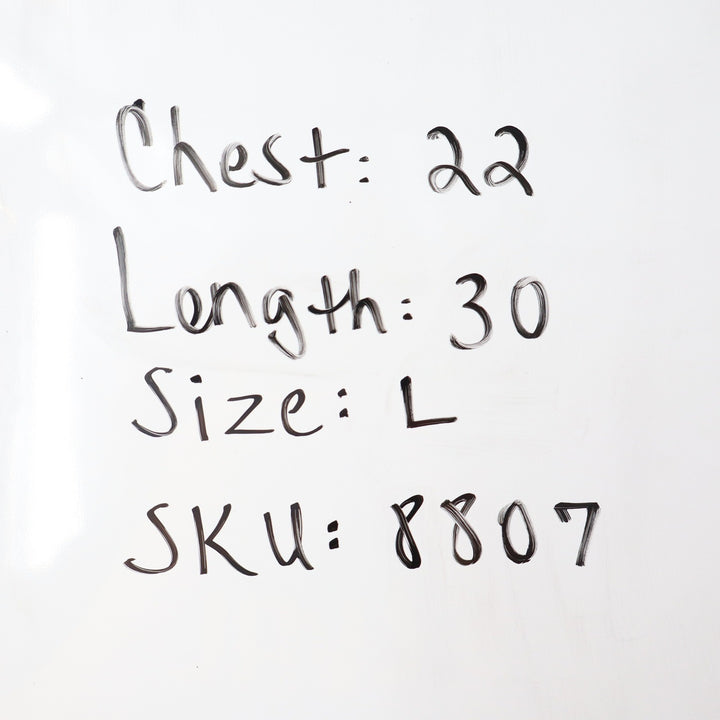 Chest: 22
Length: 30
Size: L
SKU: 8807